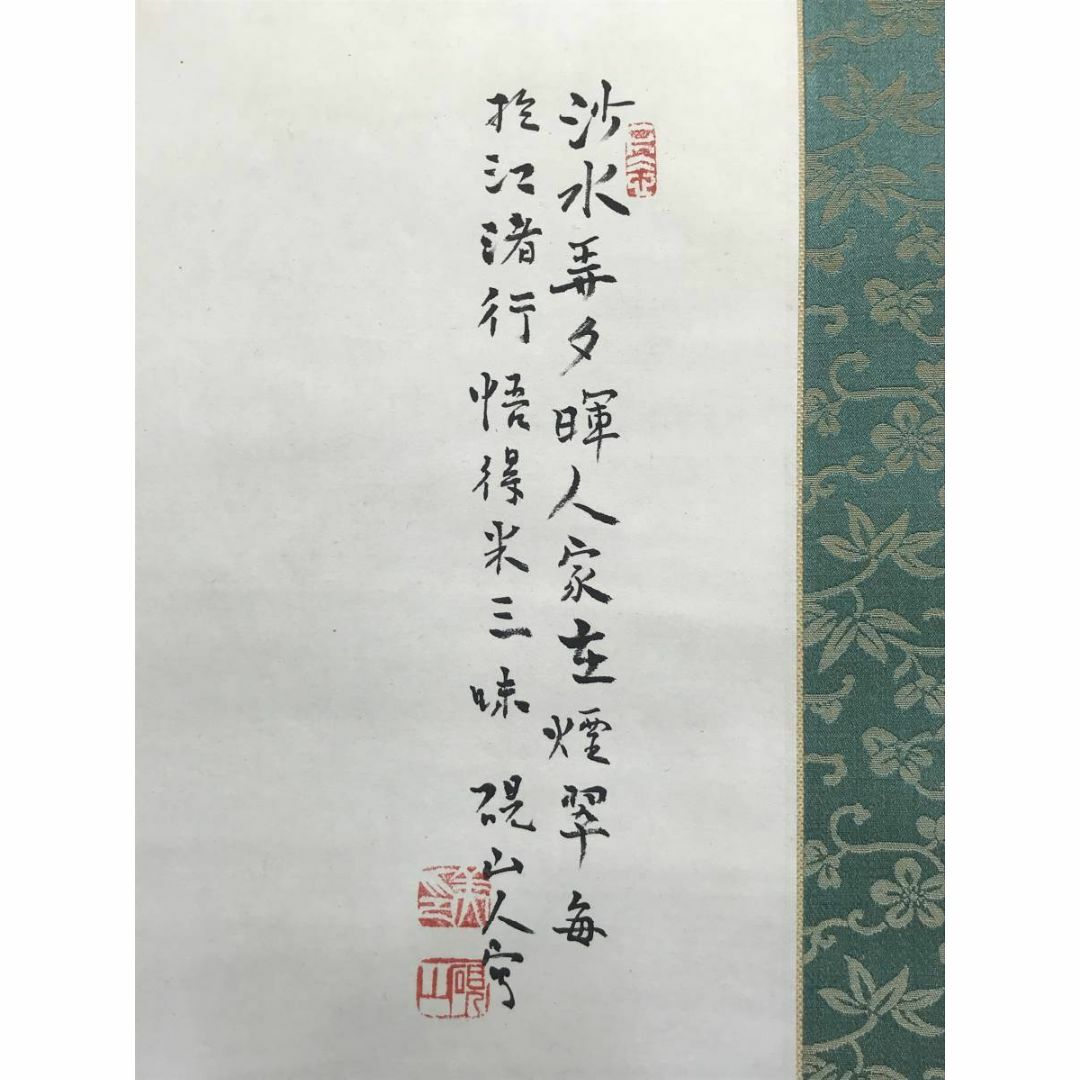 沙水弄夕暉人家在煙翠每
於江渚行悟得米三昧 硯山人寫
硯山